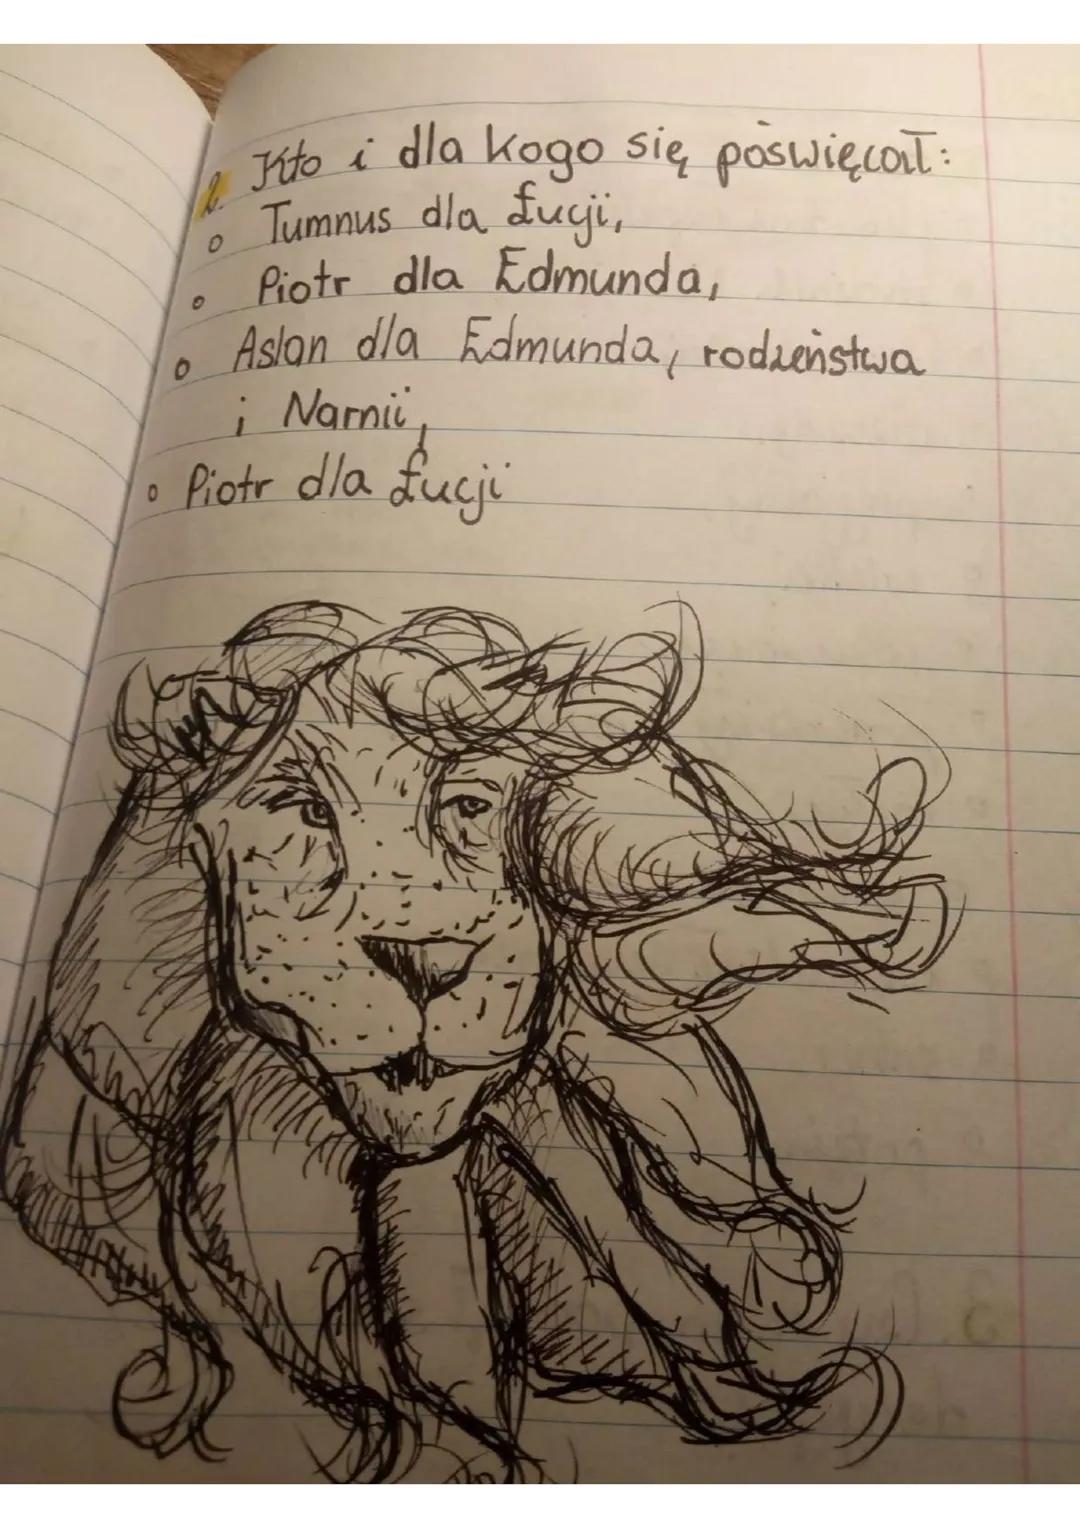 2. Kto i dla kogo się poświęcał:
o Tumnus dla Łucji,
o Piotr dla Edmunda,
o Aslan dla Edmunda, rodzeństwa
i Narnii,
o Piotr dla Łucji